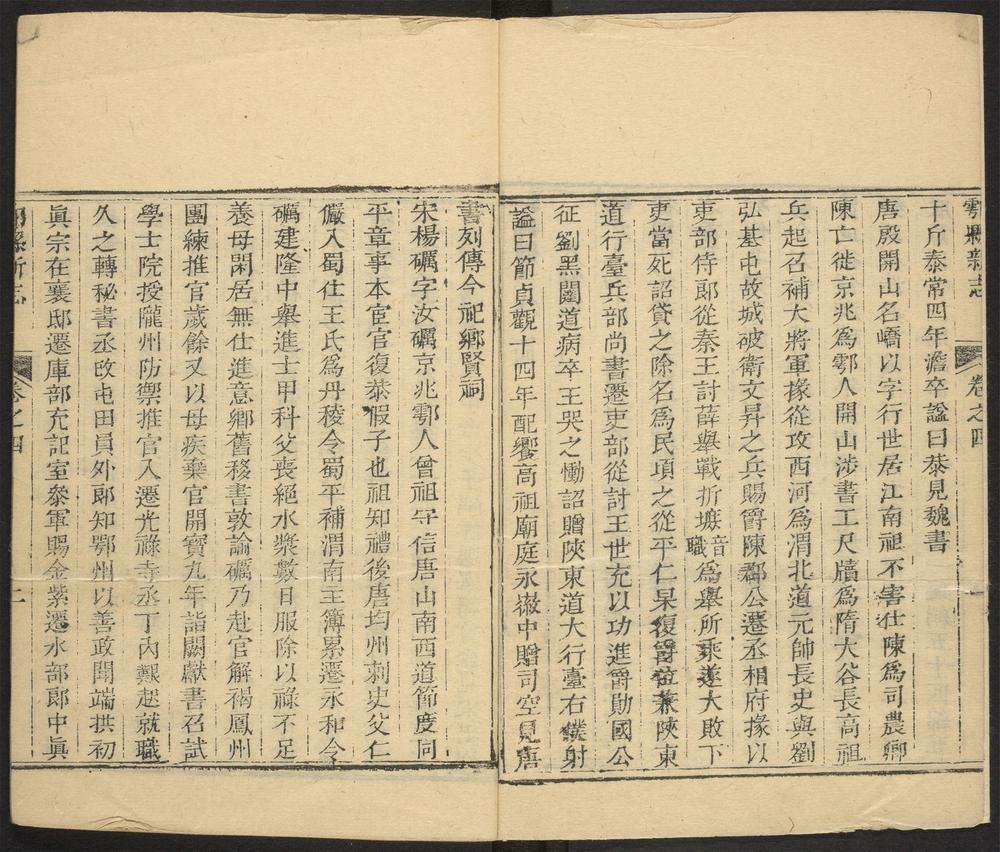 鄠縣新志
卷之四
一
十斤泰常四年澹卒諡曰恭見魏書
唐殷開山名嶠以字行世居江南祖不害仕陳爲司農卿
陳亡徙京兆爲鄠人開山涉書工尺牘爲隋大谷長高祖
兵起召補大將軍掾從攻西河爲渭北道元帥長史與劉
弘基屯故城破衛文昇之兵賜爵陳郡公遷丞相府掾以
吏部侍郎從秦王討薛舉戰折墌音職爲舉所乘遂大敗下
吏當死詔貸之除名爲民項之從平仁杲復爵位兼陝東
道行臺兵部尚書遷吏部從討王世充以功進爵勛國公
征劉黑闥道病卒王哭之慟詔贈陝東道大行臺右僕射
諡曰節貞觀十四年配饗高祖廟庭永徽中贈司空見唐
書列傳今祀鄉賢祠
宋楊礪字汝礪京兆鄠人曾祖守信唐山南西道節度同
平章事本宦官復恭假子也祖知禮後唐均州刺史父仁
儼入蜀仕王氏爲丹稜令蜀平補渭南主簿累遷永和令
礪建隆中舉進士甲科父喪絕水漿數日服除以祿不足
養母閑居無仕進意鄉舊移書敦諭礪乃赴官解褐鳳州
團練推官歲餘又以母疾棄官開寶九年詣闕獻書召試
學士院授隴州防禦推官入遷光祿寺丞丁內艱起就職
久之轉秘書丞改屯田員外郎知鄂州以善政聞端拱初
眞宗在襄邸遷庫部充記室參軍賜金紫遷水部郎中眞
鄠縣新志
卷之四
二